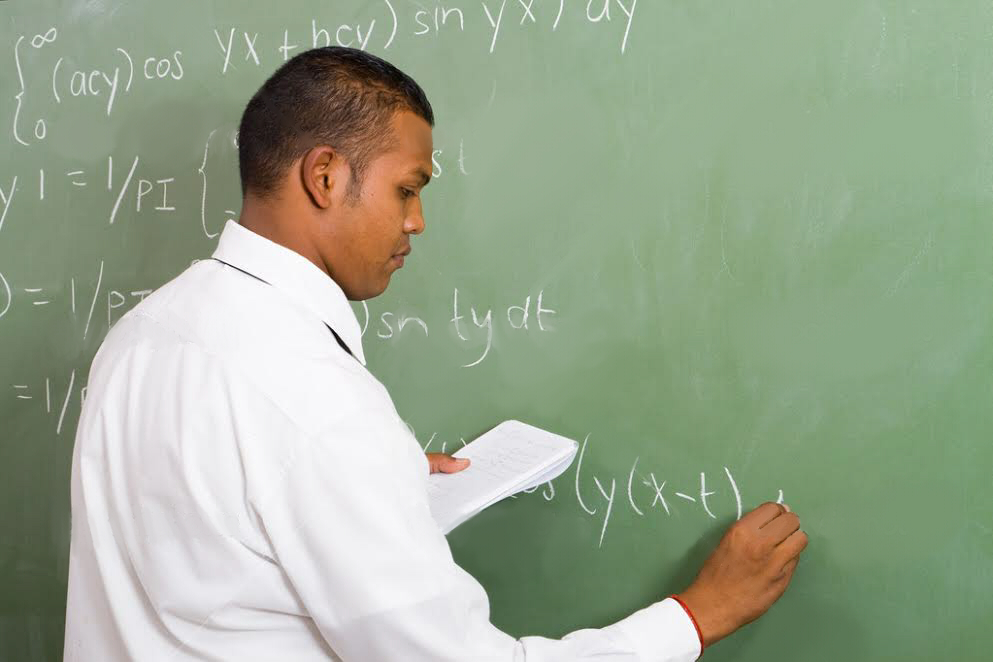 ∫ ∞ 0 (acy) cos yx + bcy) sin yx) dy
y 1 = 1/PI {
s t
) = 1/PI ) sn ty dt
= 1/P
(y(x-t)